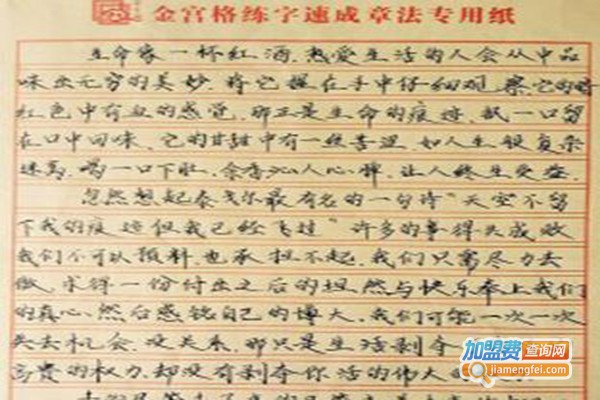 金宫格练字速成章法专用纸
生命象一杯红酒,热爱生活的人会从中品
味出无穷的美妙.将它握在手中仔细观察,它的暗
红色中有血的感觉.那正是生命的痕迹.抿一口留
在口中回味.它的甘甜中有一丝苦涩,如人生般复杂
迷离.喝一口下肚,余香沁人心脾.让人终生受益.
忽然想起泰戈尔最有名的一句诗"天空不留
下我的痕迹但我已经飞过"许多的事得失成败
我们不可以预料.也承担不起.我们只需尽力去
做,求得一份付出之后的坦然与快乐奉上我们
的真心,然后感铭自己的博大.我们可能一次一次
失去机会.没关系.那只是生活剥夺
富贵的权力.却没有剥夺你活的伟大
加盟费查询网
jiamengfei.com